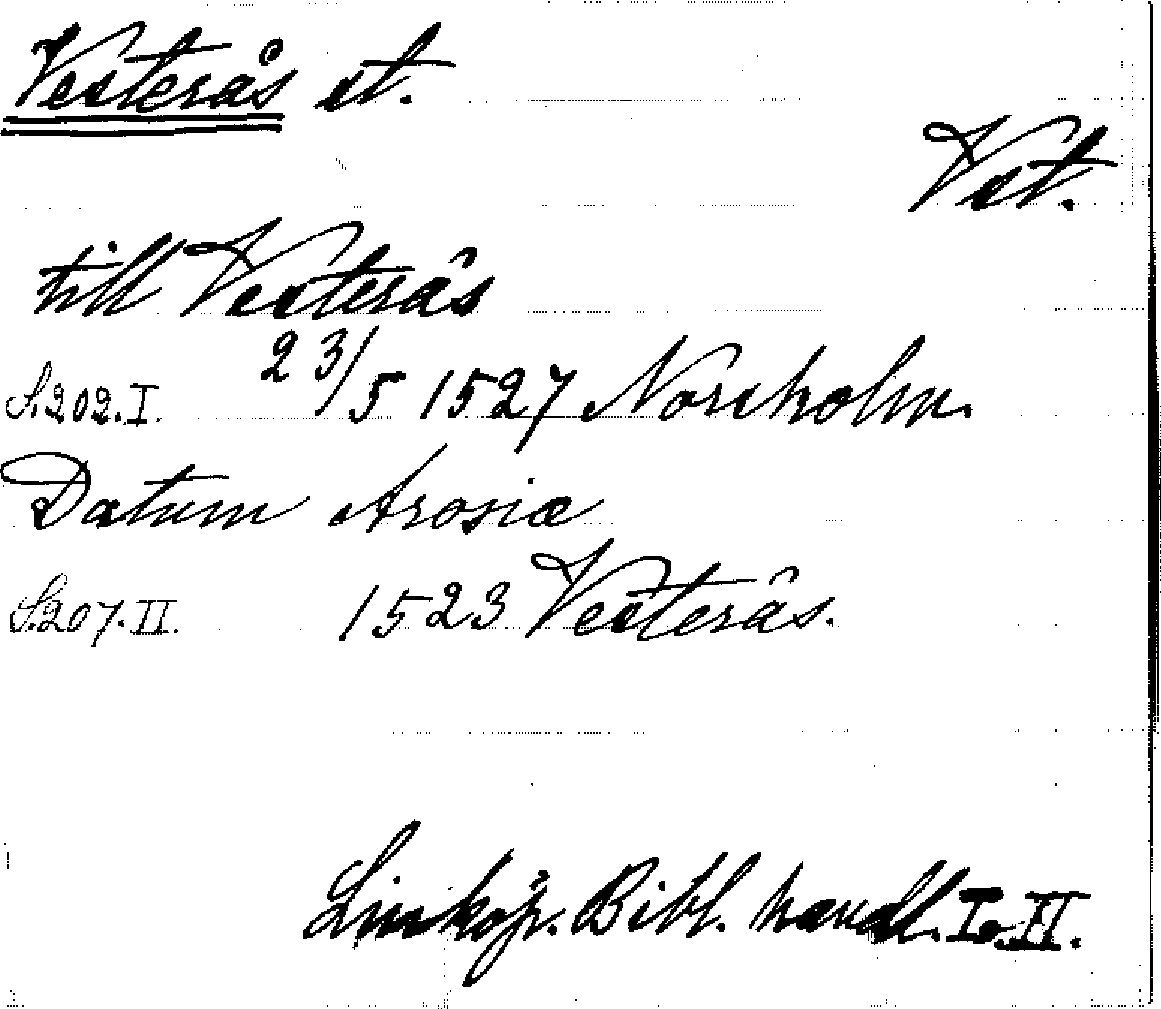 Vesterås st.
Vst.
till Vesterås
S. 202. I. 23/5 1527 Norsholm.
Datum Arosiæ
S. 207. II. 1523 Vesterås.
Linköp. Bibl. handl. I o. II.